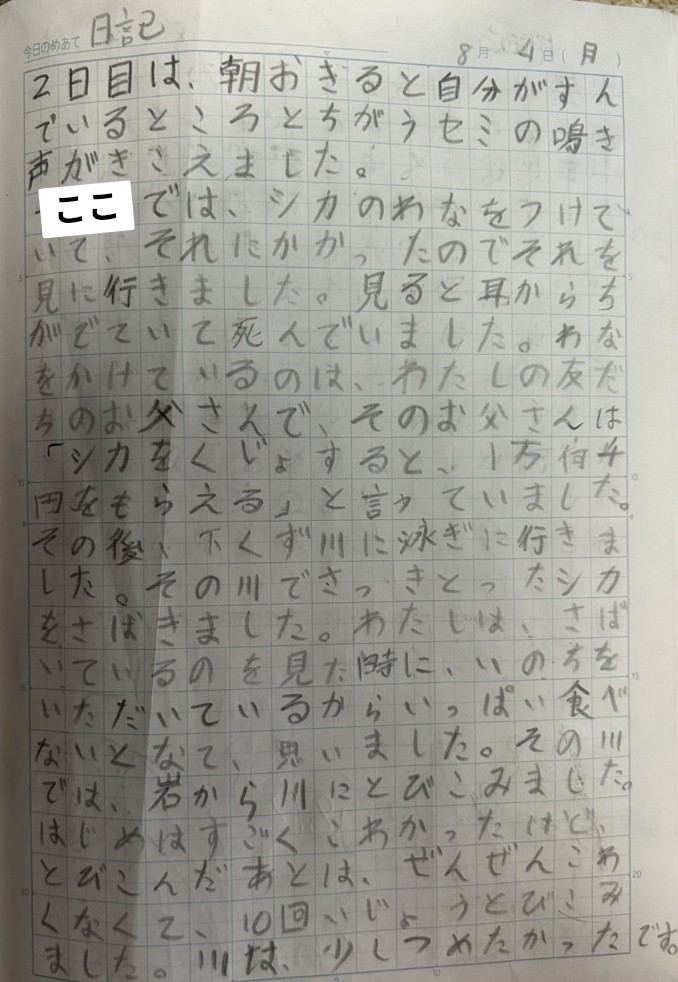 今日のめあて 日記
8月4日(月)
2日目は、朝おきると自分がすん
でいるところとちがうセミの鳴き
声がきこえました。
ここでは、シカのわなをつけて
いて、それにかかったのでそれを
見に行きました。見ると耳からち
がでていて死んでいました。わな
をかけているのは、わたしの友だ
ちのお父さんで、そのお父さんは
「シカをくじょすると、1万何千
円をもらえる」と言っていました。
その後、下くず川に泳ぎに行きま
した。その川でさっきとったシカ
をさばきました。わたしは、さば
いているのを見た時に、いのちを
いただいているからいっぱい食べ
ないとなて、思いました。その川
では、岩から川にとびこみました。
はじめはすごくこわかったけど、
とびこんだあとは、ぜんぜんこわ
くなくて、10回いじょうとびこみ
ました。川は、少しつめたかったです。
5
5
10
10
15
15
20
20
10